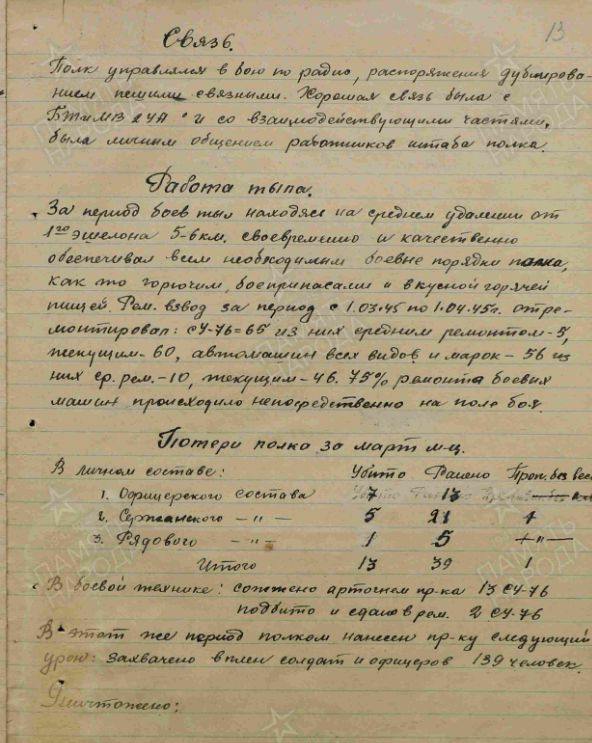 13
Связь.
Полк управлялся в бою по радио, распоряжения дублирова-
нием пешими связными. Хорошая связь была с
БТиМВ 2УА и со взаимодействующими частями,
была личным общением работников штаба полка.
Работа тыла.
За период боев тыл находясь на среднем удалении от
1го эшелона 5-8 км. своевременно и качественно
обеспечивал всем необходимым боевые порядки полка,
как то горючим, боеприпасами и вкусной горячей
пищей. Рем. взвод за период с 1.03.45 по 1.04.45г. отре-
монтировал: СУ-76=65 из них средним ремонтом-5,
текущим-60, автомашин всех видов и марок-56 из
них ср. рем.-10, текущим-46. 75% ремонта боевых
машин происходило непосредственно на поле боя.
Потери полка за март м-ц.
В личном составе: Убито Ранено Проп. без вест
1. Офицерского состава 7 13
2. Сержанского -"- 5 21 1
3. Рядового -"- 1 5 -"-
Итого 13 39 1
В боевой технике: сожжено артогнем пр-ка 13 СУ-76
подбито и сдано в рем. 2 СУ-76
В этот же период полком нанесен пр-ку следующий
урон: захвачено в плен солдат и офицеров 139 человек.
Уничтожено:
ПАМЯТЬ НАРОДА